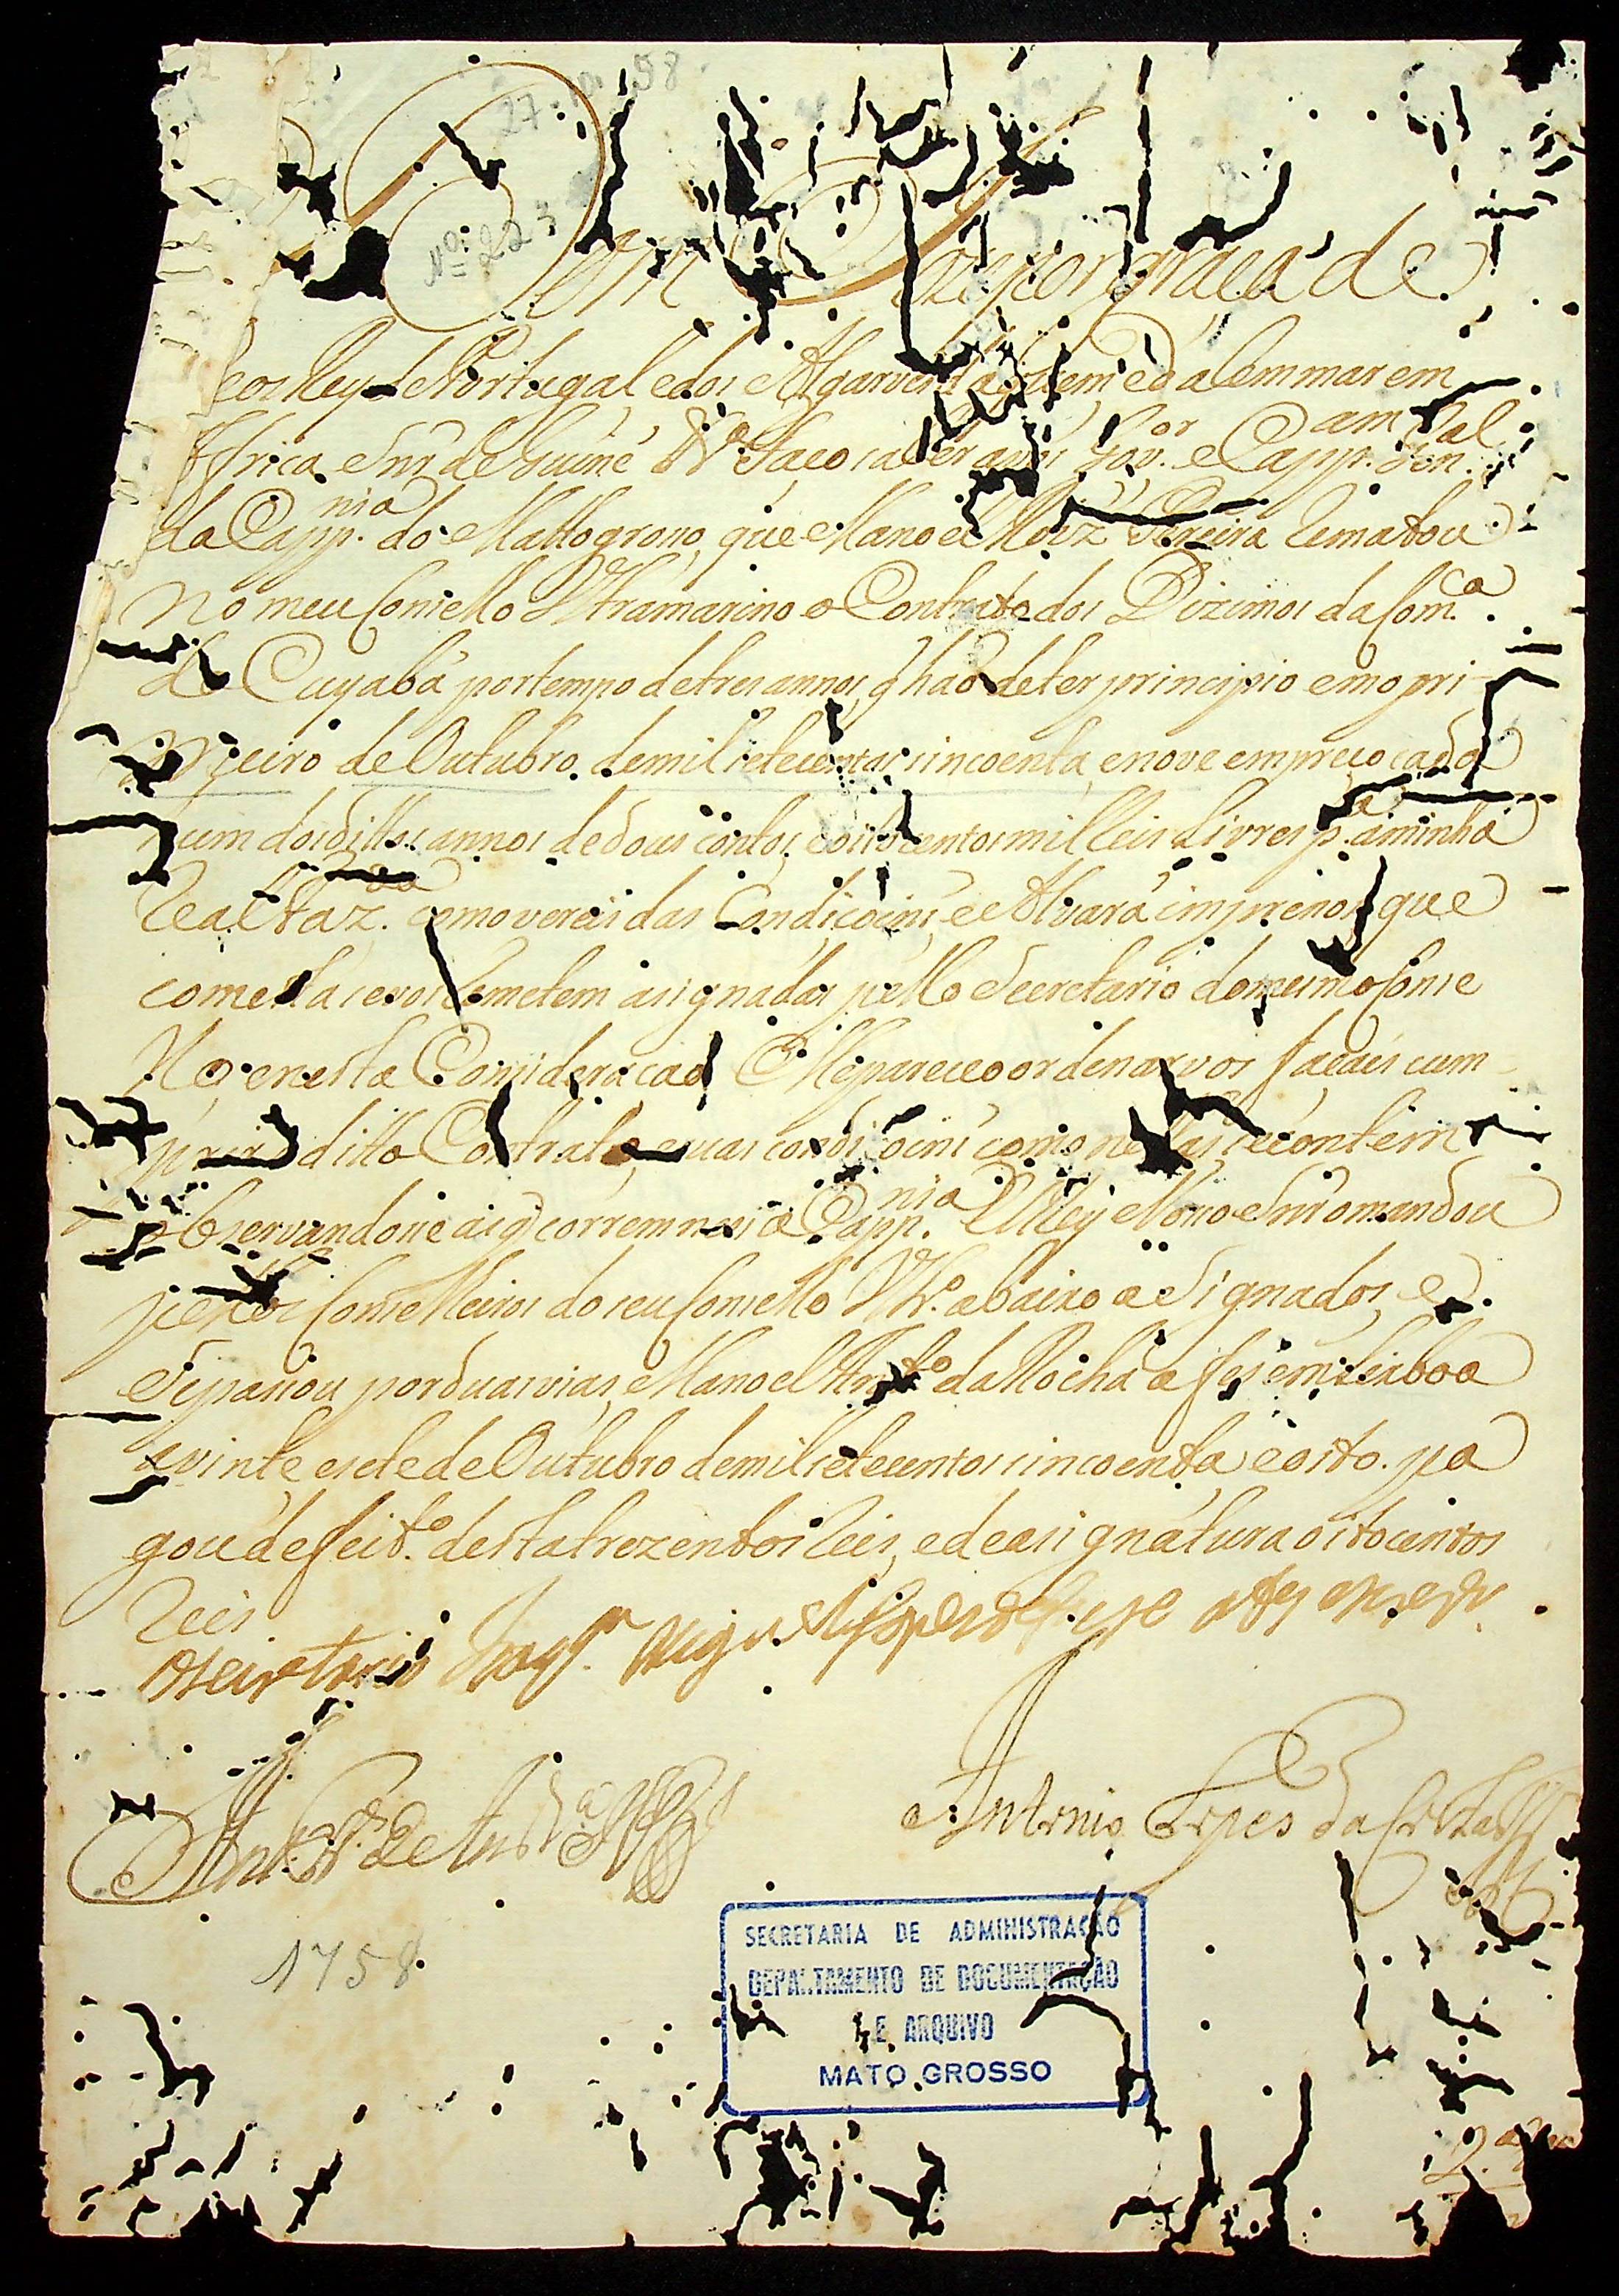 27.10.58
Nº 223
Dom Joze por graça de
Deos Rey de Portugal e dos Algarves daquem e dalem mar em
Affrica Snr̃ de Guiné &ª Faço saber a vós Gov.or e Capp.am Gen.al
da Capp.nia do Mattogrosso, que Manoel Luiz Pereira Rematou
no meu Conselho Ultramarino o Contrato dos Dizimos da Com.ca
do Cuyabá por tempo de tres annos, q̃ hão de ter principio em o pri-
meiro de Outubro de mil setecentos sincoenta, e nove em preço cada
hum dos dittos annos de dous contos, e oitocentos mil Reis Livres p.ª a minha
Real Faz.da como vereis das Condiçoins, e Alvará impresso, que
com esta se vos Remetem asignadas pello Secretario do mesmo Conse
lho, e nesta Consideração Me pareceo ordenarvos façaes cum-
prir o ditto Contrato, e suas condiçoins como nellas se contem
observandose as q̃ correm nessa Capp.nia ElRey Nosso Snr̃ o mandou
pellos Conselheiros do seu Conselho Ultr.º abaixo asignados, e
Se passou por duas vias, Manoel Ant.º da Rocha a fes em Lisboa
a vinte e sete de Outubro de mil setecentos sincoenta, e oito. pa
gou de feit.º desta trezentos Reis, e de asignatura oitocentos
Reis
O Secretario Joaq.m Miguel Lopes de Lavre a fes escrever.
Antonio Lopes da Costa
1758
SECRETARIA DE ADMINISTRAÇÃO
DEPARTAMENTO DE DOCUMENTAÇÃO
E ARQUIVO
MATO GROSSO
2.ª